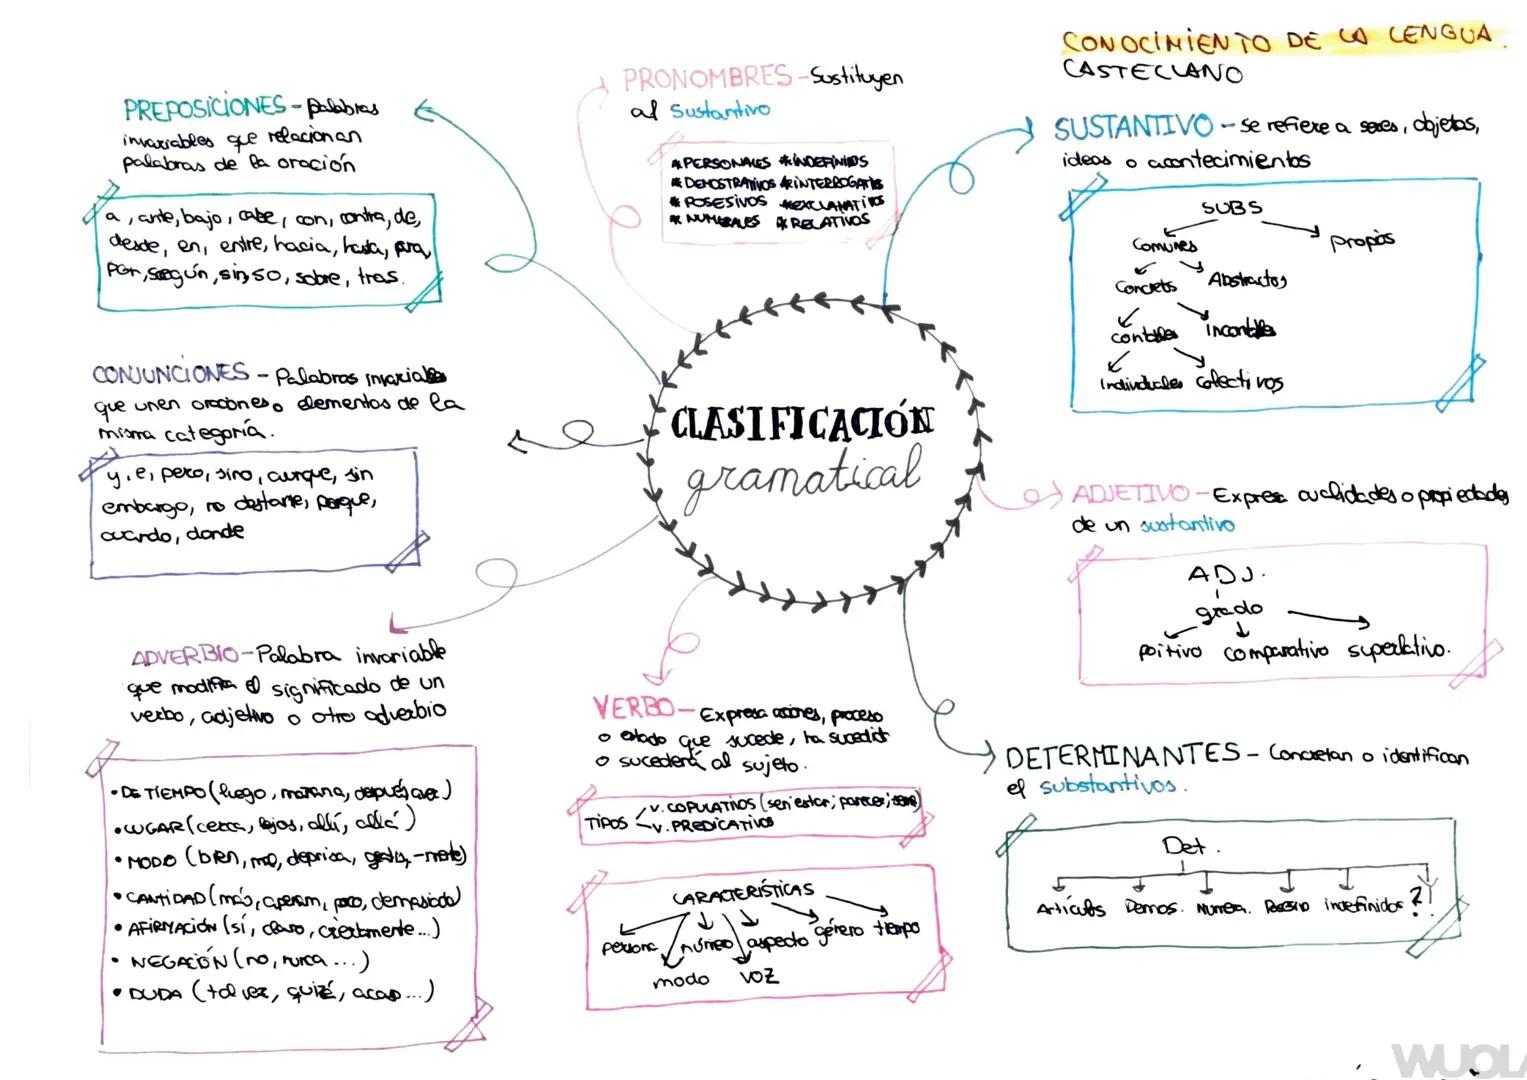 CONOCIMIENTO DE LA LENGUA.
CASTELLANO
CLASIFICACIÓN
gramatical
PRONOMBRES - Sustituyen
al Sustantivo
* PERSONALES * INDEFINIDOS
* DEMOSTRATIVOS * INTERROGATIVOS
* POSESIVOS * EXCLAMATIVOS
* NUMERALES * RELATIVOS
SUSTANTIVO - se refiere a seres, objetos,
ideas o acontecimientos
SUBS
Comunes propios
Concretos Abstractos
contables Incontables
Individuales Colectivos
ADJETIVO - Expresa cualidades o propiedades
de un sustantivo
ADJ.
grado
Poitivo comparativo superlativo.
DETERMINANTES - Concretan o identifican
el substantivos.
Det.
Artículos Demos. Numer. indefinidos ?!
VERBO - Expresa acciones, proceso
o estado que sucede, ha sucedido
o sucederá al sujeto.
TIPOS V. COPULATIVOS (ser; estar; parecer;
V. PREDICATIVOS
CARACTERÍSTICAS
persona número aspecto género tiempo
modo VOZ
ADVERBIO - Palabra invariable
que modifica el significado de un
verbo, adjetivo o otro adverbio
• DE TIEMPO (luego, mañana, después, ayer)
• LUGAR (cerca, lejos, allí, allá)
• MODO (bien, mal, deprisa, gratis, -mente)
• CANTIDAD (más, apenas, poco, demasiado)
• AFIRMACIÓN (sí, claro, ciertamente...)
• NEGACIÓN (no, nunca ...)
• DUDA (tal vez, quizá, acaso ...)
CONJUNCIONES - Palabras invariables
que unen oraciones o elementos de la
misma categoría.
y, e, pero, sino, aunque, sin
embargo, no obstante, porque,
cuando, donde
PREPOSICIONES - palabras
invariables que relacionan
palabras de la oración
a, ante, bajo, cabe, con, contra, de,
desde, en, entre, hacia, hasta, para,
por, según, sin, so, sobre, tras.
WUOLA